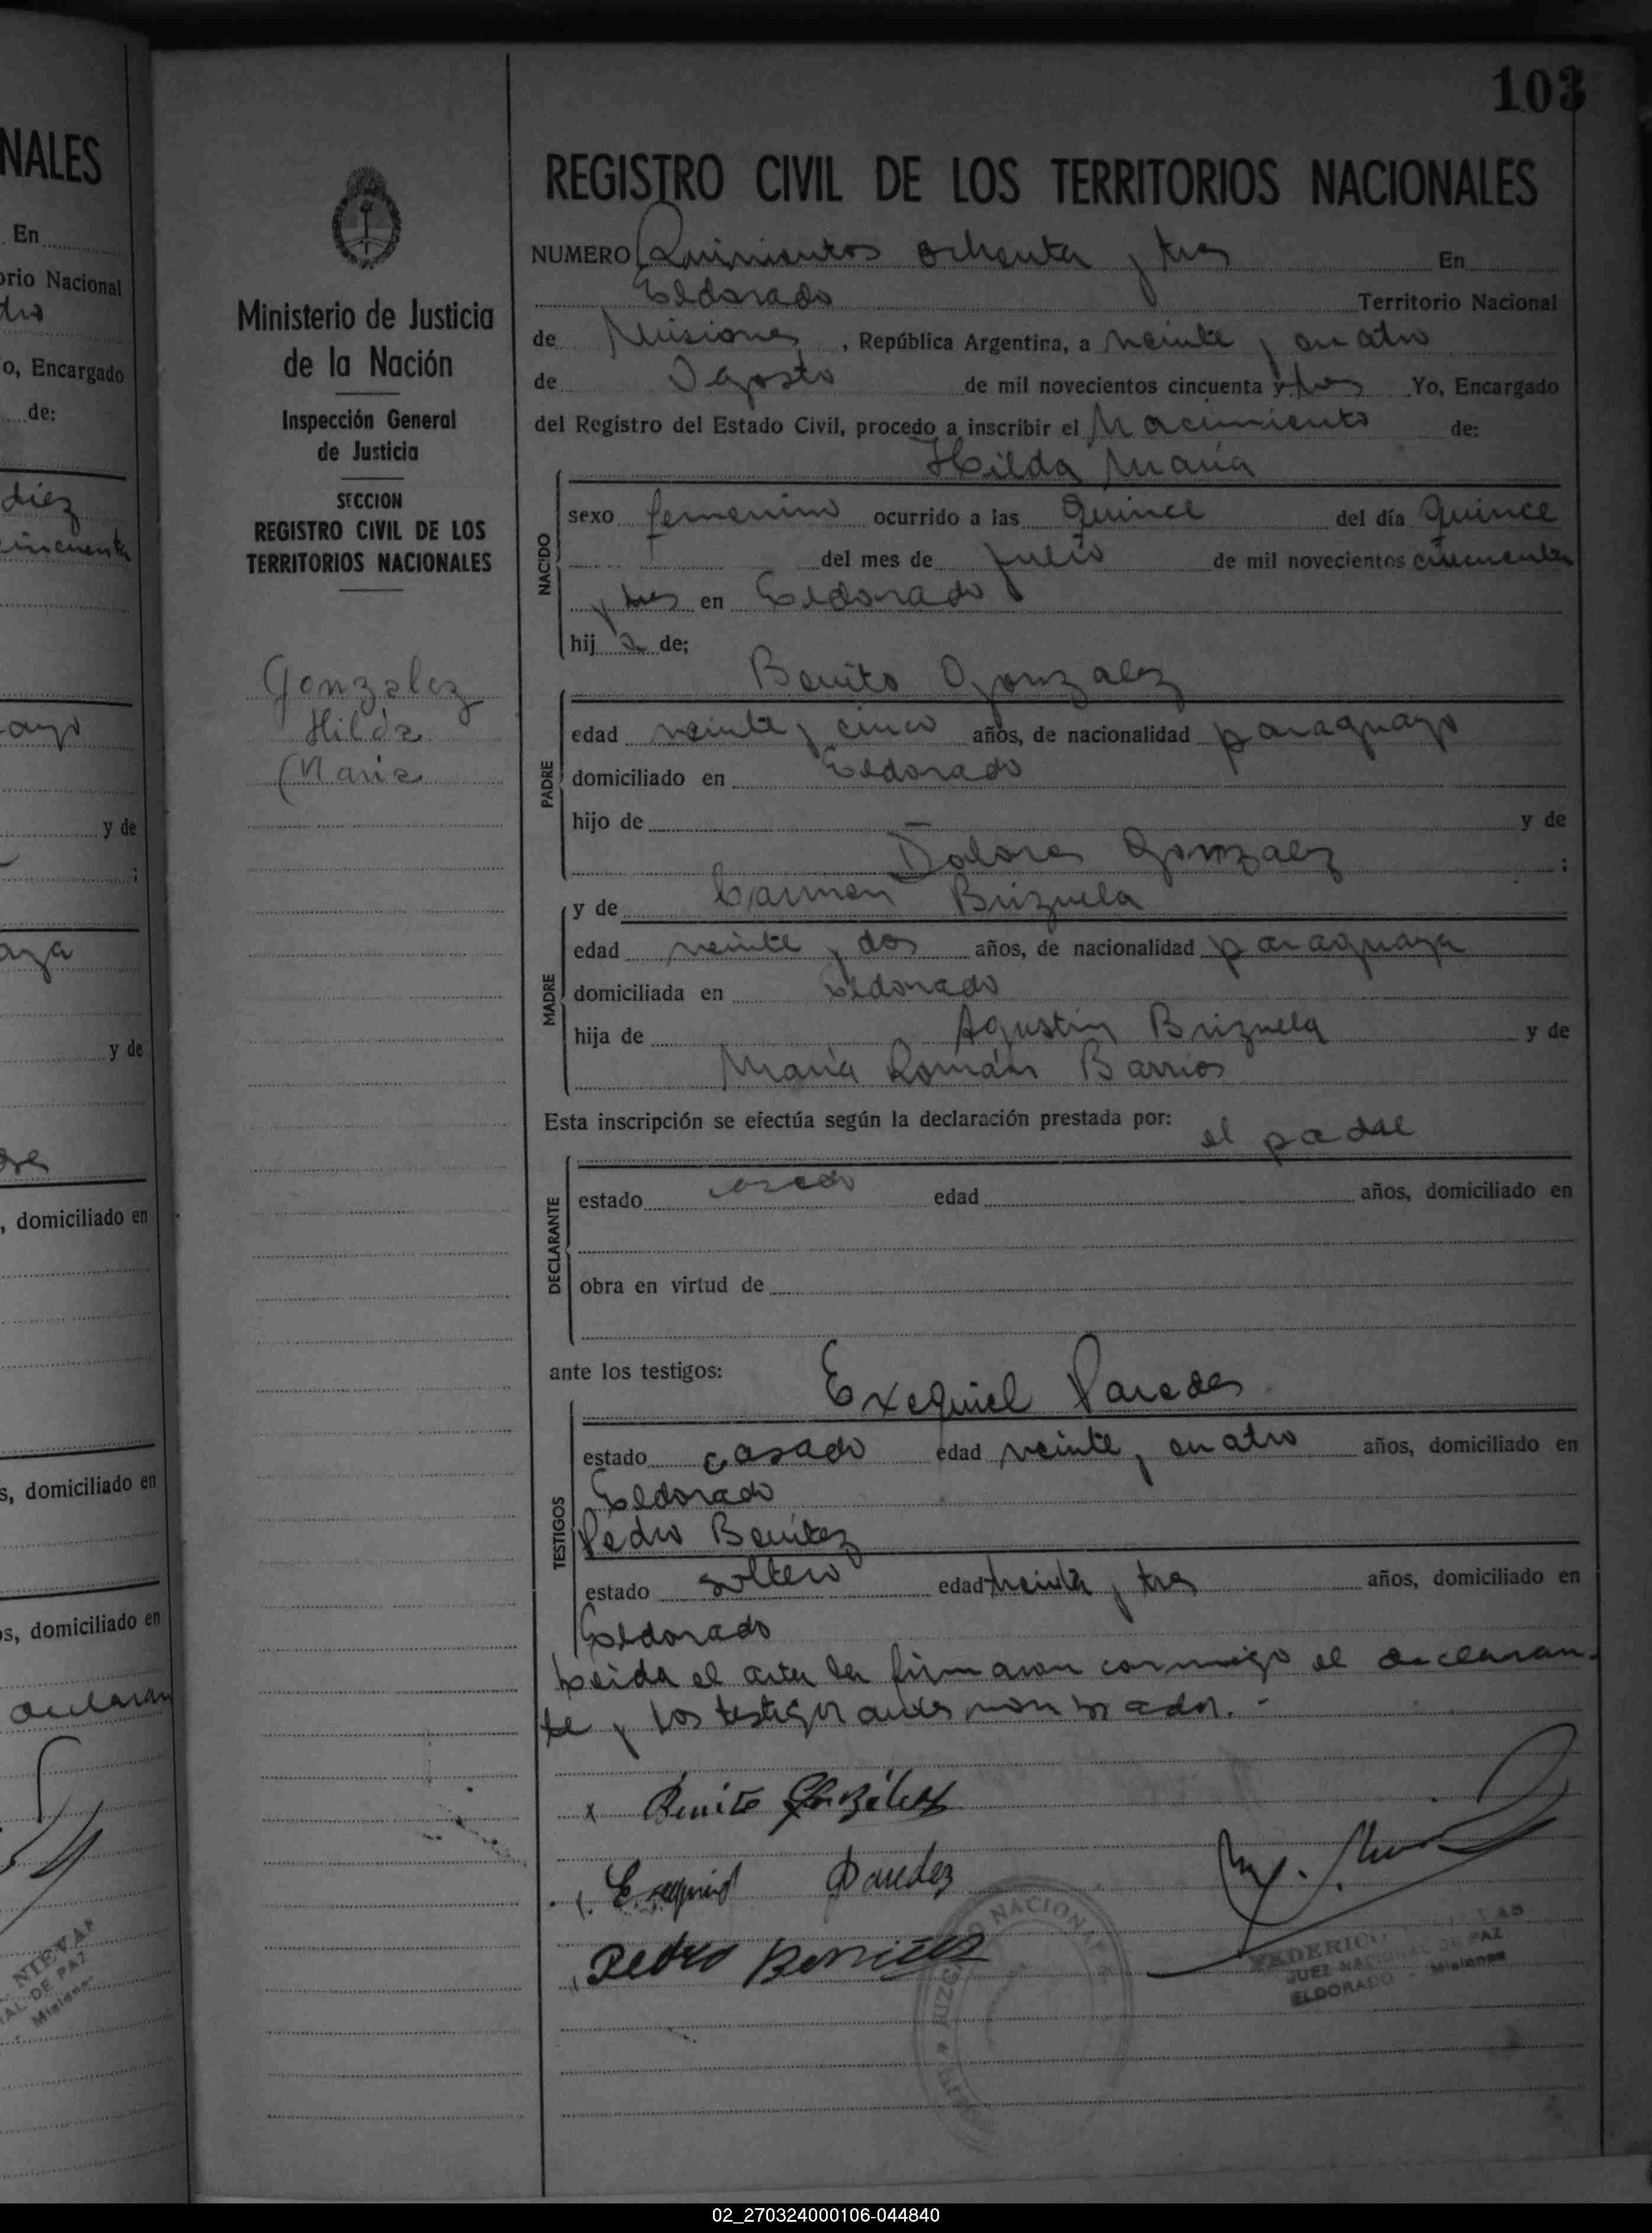 103
NALES
En
orio Nacional
o, Encargado
de:
diez
cincuenta
y de
y de
, domiciliado en
s, domiciliado en
os, domiciliado en
declaran
NIEVAS
AL DE PAZ
Misiones
Ministerio de Justicia
de la Nación
Inspección General
de Justicia
SECCION
REGISTRO CIVIL DE LOS
TERRITORIOS NACIONALES
Gonzalez
Hilda
Maria
REGISTRO CIVIL DE LOS TERRITORIOS NACIONALES
NUMERO Quinientos ochenta y tres En
Eldorado Territorio Nacional
de Misiones, República Argentina, a veinte y cuatro
de Agosto de mil novecientos cincuenta y tres Yo, Encargado
del Registro del Estado Civil, procedo a inscribir el Nacimiento de:
Hilda María
NACIDO
sexo femenino ocurrido a las quince del día quince
del mes de julio de mil novecientos cincuenta
y tres en Eldorado
hija de;
Benito Gonzalez
PADRE
edad veinte y cinco años, de nacionalidad paraguayo
domiciliado en Eldorado
hijo de y de
Dolores Gonzalez ;
MADRE
y de Carmen Brizuela
edad veinte y dos años, de nacionalidad paraguaya
domiciliada en Eldorado
hija de Agustin Brizuela y de
María Román Barrios
Esta inscripción se efectúa según la declaración prestada por: el padre
DECLARANTE
estado casado edad años, domiciliado en
obra en virtud de
ante los testigos: Exequiel Paredes
TESTIGOS
estado casado edad veinte y cuatro años, domiciliado en
Eldorado
Pedro Benítez
estado soltero edad treinta y tres años, domiciliado en
Eldorado
Leida el acta la firmaron conmigo el declaran-
te y los testigos antes nombrados.-
x Benito González
Exequiel Paredez
Pedro Benitez
NACIONAL
FEDERICO
JUEZ NACIONAL DE PAZ
ELDORADO - Misiones
02_270324000106-044840